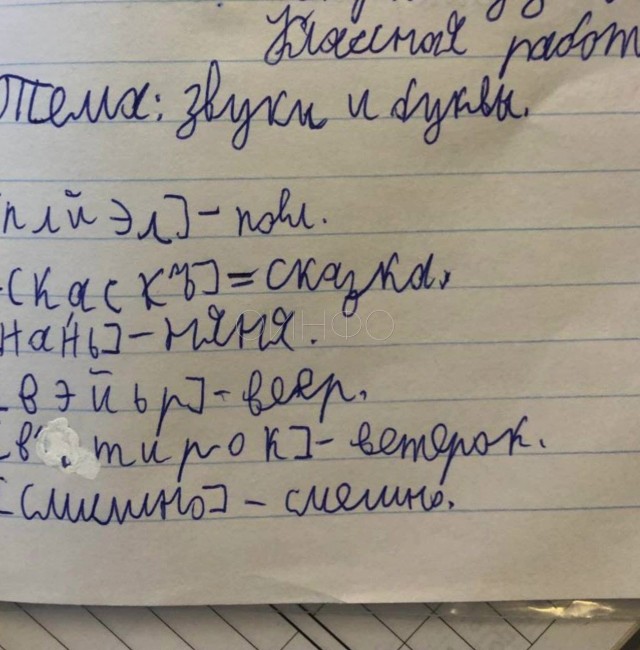 Классная работ
Тема: звуки и буквы.
[плйэл] - поел.
[скаскъ] = сказка.
[наньь] - няня.
[вэйьр] - веер.
[в' тирок] - ветерок.
[смишно] - смешно.